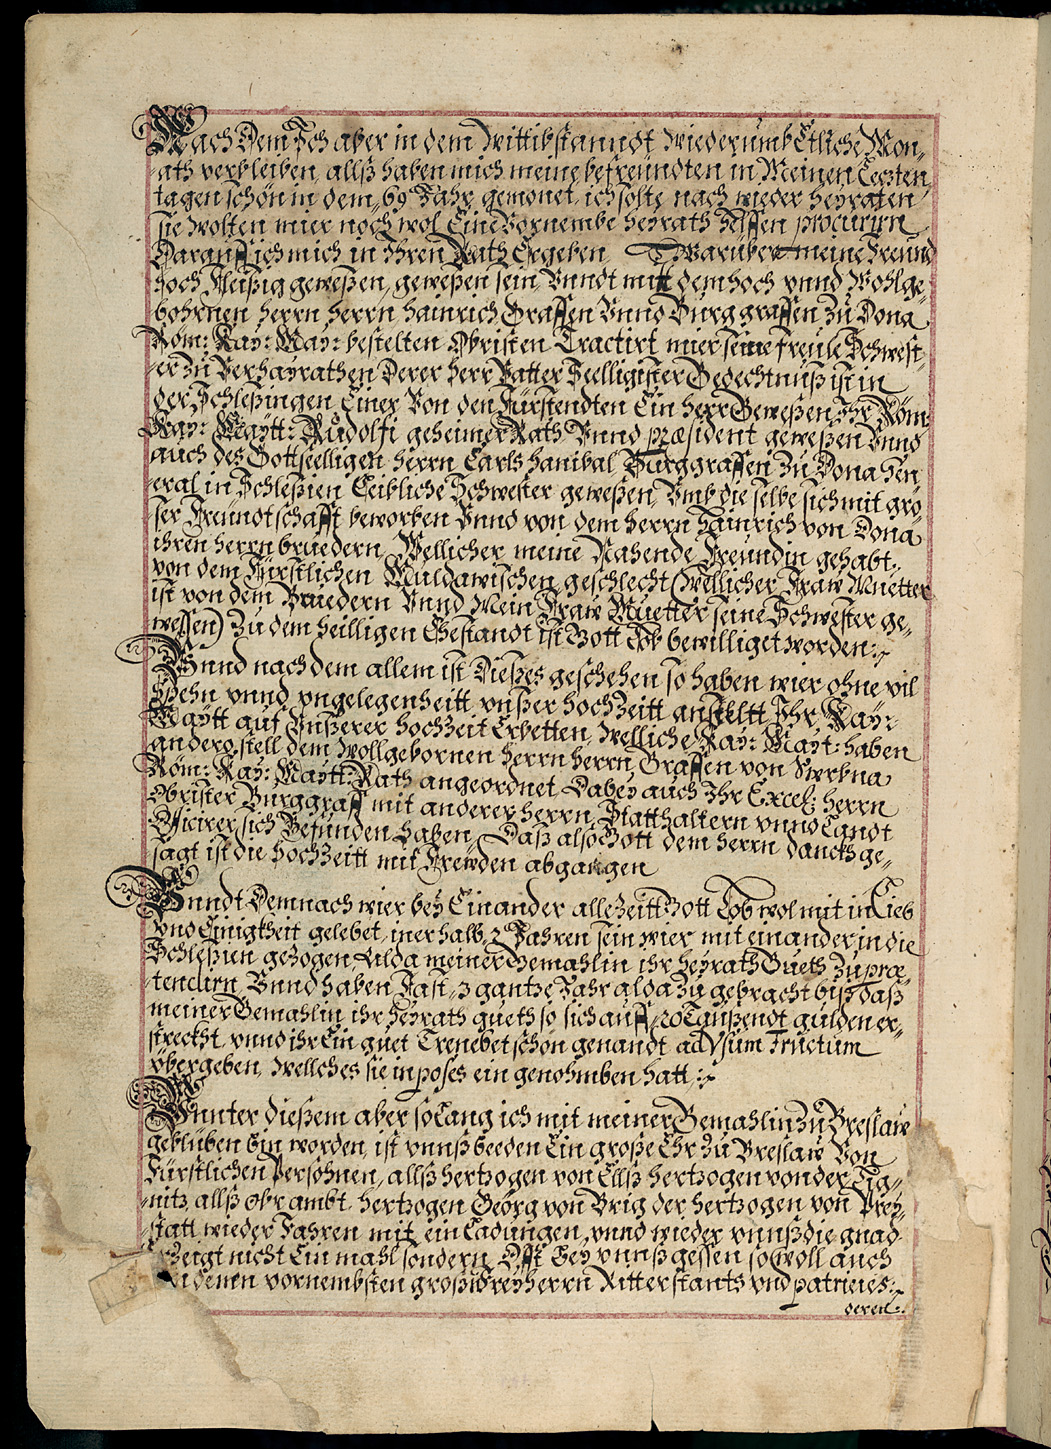 Nach Dem Ich aber in dem Wittibstanndt Wiederumb Etliche Mon-
ath verbleiben, allß haben mich meine befreundten in Meinen Letzten
tagen schon in dem 69 Jahr gemonet, ich solte nach wieder heyraten
sie wolten mier noch wol Eine Vornembe heyrath helffen procurirn
Darauff ich mich in Ihren Rath Ergeben Warüber meine Freund
hoch Fleißig geweßen, geweßen sein, Vnndt mitt dem hoch vnnd Wohlge-
bohrnen herrn herrn hainrich Graffen Vnnd Burggraffen zu Dona
Röm: Kay: May: bestelten Obristen Tractirt mier seine freüle Schwest-
er zu Verhayrathen Derer herr Vatter Seelligister Gedechtnuß ist in
der Schleßingen Einer Von den Fürstendten Ein herr Geweßen, Ihr Röm:
Kay: Maytt: Rudolfi geheimer Rath Vnnd præsident geweßen Vnnd
auch des Gottseelligen herrn Carls hanibal Burggraffen zu Dona Gen-
eral in Schleßien Leibliche Schwester geweßen, Vmb die selbe sich mit gro-
ser Freundtschafft beworben Vnnd von dem herrn Hainrich von Dona
ihren herrn bruedern Wellicher meine Nahende Freundin gehabt,
von dem Fürstlichen Muldawischen geschlecht (Wellicher Fraw Muetter
ist von dem Bruedern Vnnd Mein Fraw Muetter seine Schwester ge-
weßen) Zu dem heilligen Ehestandt ist Gott Lob bewilliget worden:
Vnnd nach dem allem ist Dießes geschehen so haben wier ohne vil
vnnd vngelegenheitt vnßer hochzeitt anstelltt Ihr Kay:
Maytt auf Vnßerer hochzeit Erbetten, Welliche Kay: Mayt: haben
andero stell dem Wollgebornen herrn herrn Graffen von
Röm: Kay: Maytt: Rath angeordnet, Dabey auch Ihr Excel: herrn
Obrister Burggraff mit anderer herrn Statthaltern vnnd Landt
Officirer sich Befunden haben, Daß also Gott dem herrn danckh ge-
sagt ist die hochzeitt mit Frewden abgangen
Vnndt Demnach wier bey Einander allezeitt Gott Lob wol mit in Lieb
vnd Einigkheit gelebet, inerhalb 2 Jahren sein wier mit einander in die
Schleßien gezogen Allda meiner Gemahlin ihr heyrath Gueth zu præ-
tendirn, Vnnd haben Fast 3 gantze Jahr alda zu gebracht biß daß
meiner Gemahlin ihr heyrath gueth so sich auff 20 Taußendt gulden er-
streckht, vnnd ihr Ein guet Trenebetschon genandt ad Vsum Fructum
vbergeben, Wellches sie in poses ein genohmben hatt:
Vnnter dießem aber so Lang ich mit meiner Gemahlin Zu Breslaw
geblüben bin worden, ist vnnß beeden Ein große Ehr zu Breslaw Von
Fürstlichen Persohnen, allß hertzogen von Ellß hertzogen von der Lig-
nitz allß obr ambt, hertzogen Georg von Brig der hertzogen von
statt wieder Fahren mit ein Ladungen, vnnd wieder vnnß die gnad
Erzeigt nicht Ein mahl sondern Offt bey vnnß geßen so Woll auch
denen vornembsten große Freyherrn Ritterstants vnd patricies:
deren: